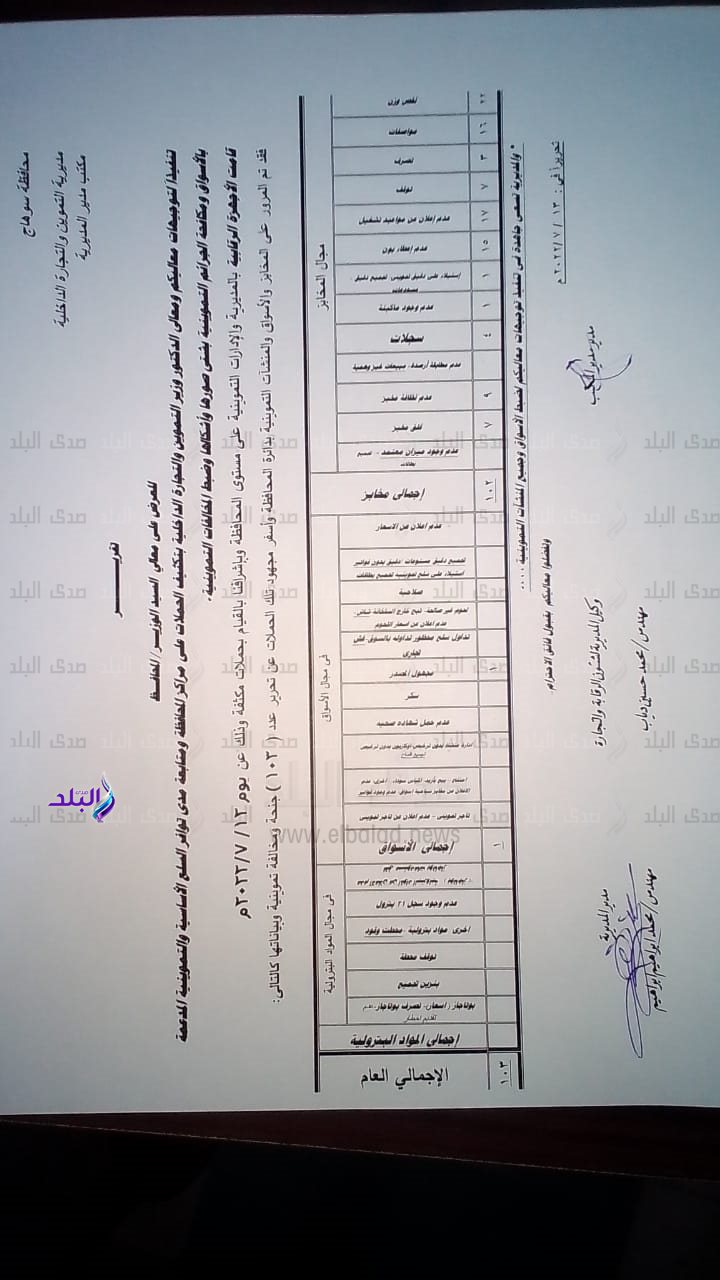 محافظة سوهاج
مديرية التموين والتجارة الداخلية
مكتب مدير المديرية
تقريـــــر
للعرض على معالى السيد الوزيـــر / المحافـــظ
تنفيذا لتوجيهات معاليكم ومعالى الدكتور وزير التموين والتجارة الداخلية بتكثيف الحملات على مراكز المحافظة ومتابعة مدى توافر السلع الأساسية والتموينية المدعمة
بالأسواق ومكافحة الجرائم التموينية بشتى صورها وأشكالها وضبط المخالفات التموينية .
قامت الأجهزة الرقابية بالمديرية والإدارات التموينية على مستوى المحافظة وبإشرافنا بالقيام بحملات مكثفة وذلك عن يوم ١٣ /٢٠٢٢/٧م
فقد تم المرور على المخابز والأسواق والمنشآت التموينية بدائرة المحافظة وأسفر مجهود تلك الحملات عن تحرير عدد ( ١٠٣ ) جنحة ومخالفة تموينية وبياناتها كالتالى :
مجال المخابز
نقص وزن ٢٢
مواصفات ١٦
تصرف ٣
توقف ٧
عدم اعلان عن مواعيد تشغيل ١٧
عدم إعطاء بون ١٥
إستيلاء على دقيق تموينى - تجميع دقيق مستودعات ١
عدم وجود ماكينة ١
سجلات ٤
عدم مطابقة أرصدة - مبيعات غير وهمية
عدم نظافة مخبز ٩
غلق مخبز ٧
عدم وجود ميزان معتمد - تجميع بطاقات
إجمالى مخابز ١٠٢
فى مجال الأسواق
عدم اعلان عن الاسعار
تجميع دقيق مستودعات / دقيق بدون فواتير
استيلاء على سلع تموينيه تجميع بطاقات
صلاحية
لحوم غير صالحة - ذبح خارج السلخانة
عدم إعلان عن اسعار اللحوم
تداول سلع محظور تداوله بالسوق - غش تجارى
مجهول المصدر ١
سكر
عدم حمل شهاده صحيه
عدم اعلان من تاجر تموينى
إجمالى الأسواق ١
فى مجال المواد البترولية
عدم وجود سجل ٢١ بترول
اخرى مواد بترولية - محطات وقود
توقف محطة
بنزين تجميع
إجمالى المواد البترولية
الإجمالي العام ١٠٣
* والمديرية تسعى جاهدة فى تنفيذ توجيهات معاليكم لضبط الأسواق وجميع المنشآت التموينية ....
وتفضلوا معاليكم بقبول فائق الاحترام .
تحريراً فى : ١٣ / ٢٠٢٢/٧ م
مدير مدير المكتب
وكيل المديرية لشئون الرقابة والتجارة
مهندس / محمد حسنين دياب
مدير المديرية
مهندس / محمد ابراهيم ابراهيم
صدى البلد
www.elbalad.news